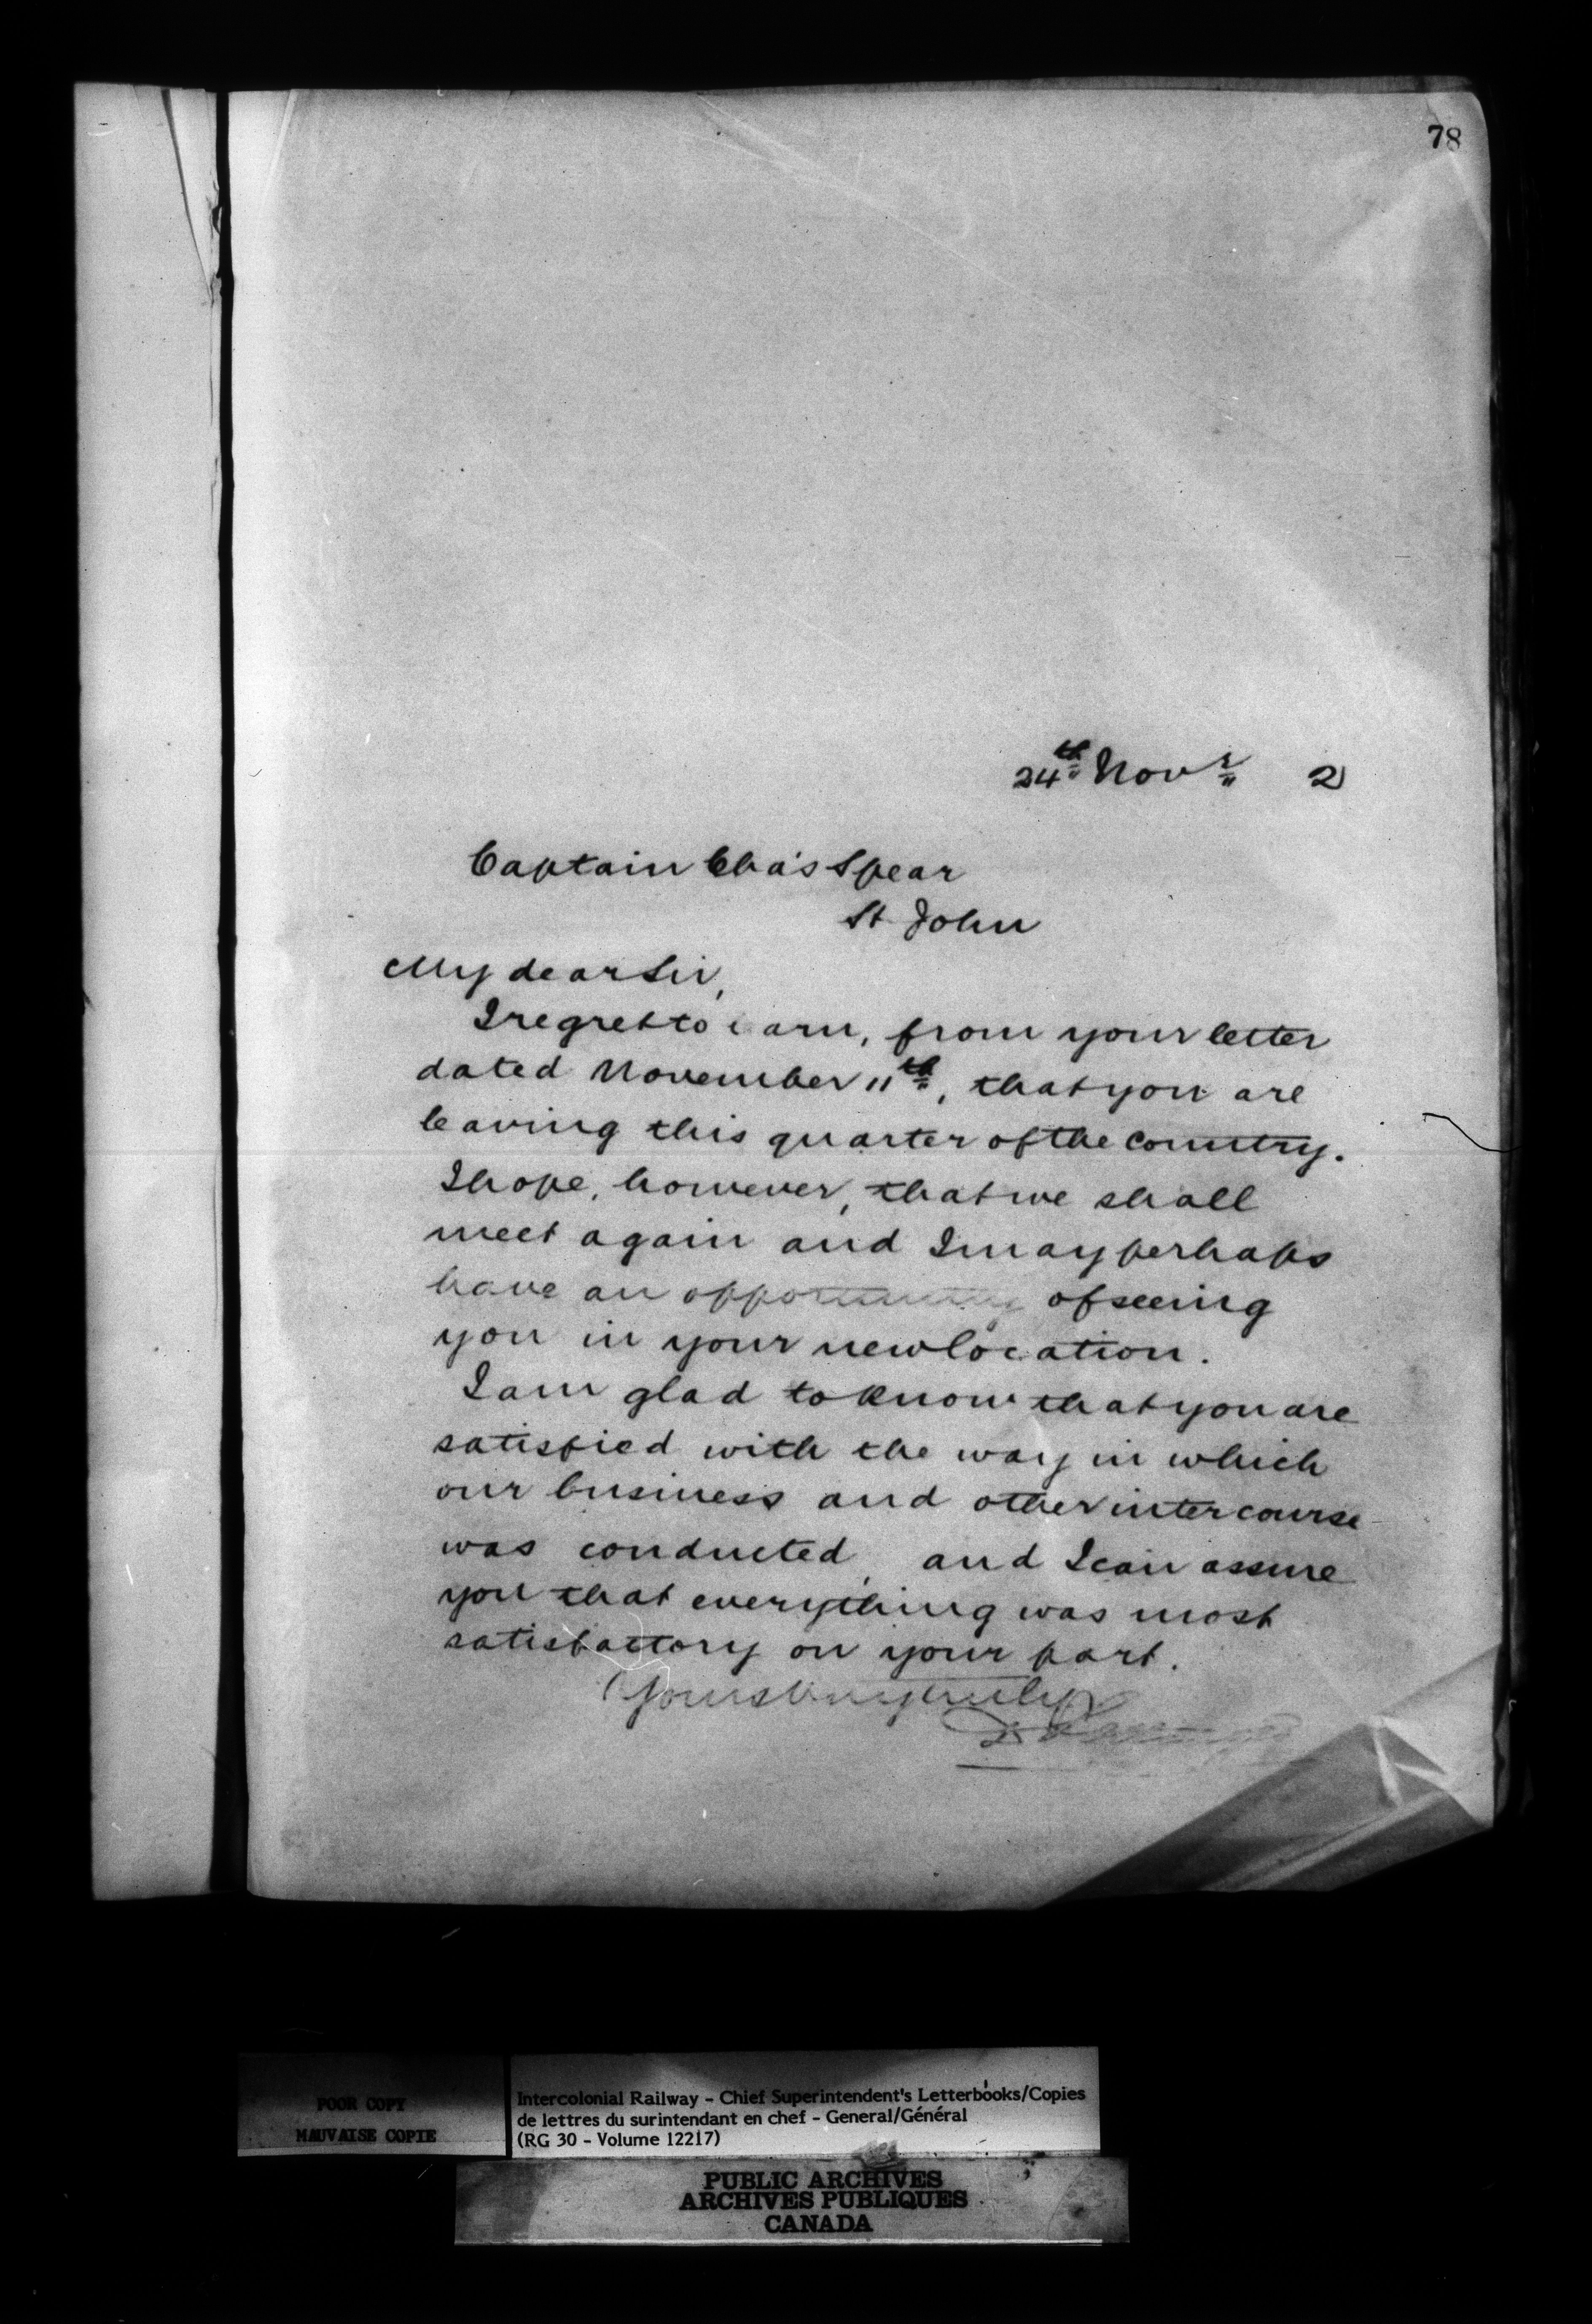 78
24th Novr 2
Captain Cha's Spear
St John
My dear Sir,
I regret to learn, from your letter
dated November 11th, that you are
leaving this quarter of the country.
I hope, however, that we shall
meet again and I may perhaps
have an opportunity of seeing
you in your new location.
I am glad to know that you are
satisfied with the way in which
our business and other intercourse
was conducted, and I can assure
you that everything was most
satisfactory on your part.
Yours very truly
POOR COPY
MAUVAISE COPIE
Intercolonial Railway - Chief Superintendent's Letterbooks/Copies
de lettres du surintendant en chef - General/Général
(RG 30 - Volume 12217)
PUBLIC ARCHIVES
ARCHIVES PUBLIQUES
CANADA